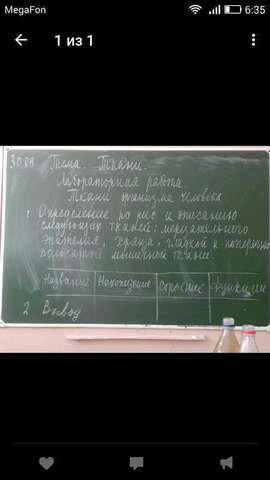 MegaFon 6:35
1 из 1
30.09 Тема. Ткани.
Лабораторная работа
Ткани организма человека
1. Определение по рис и описанию
следующих тканей: мерцательного
эпителия, хряща, гладкой и поперечно
полосатой мышечной ткани.
Название Нахождение Строение Функции
2 Вывод